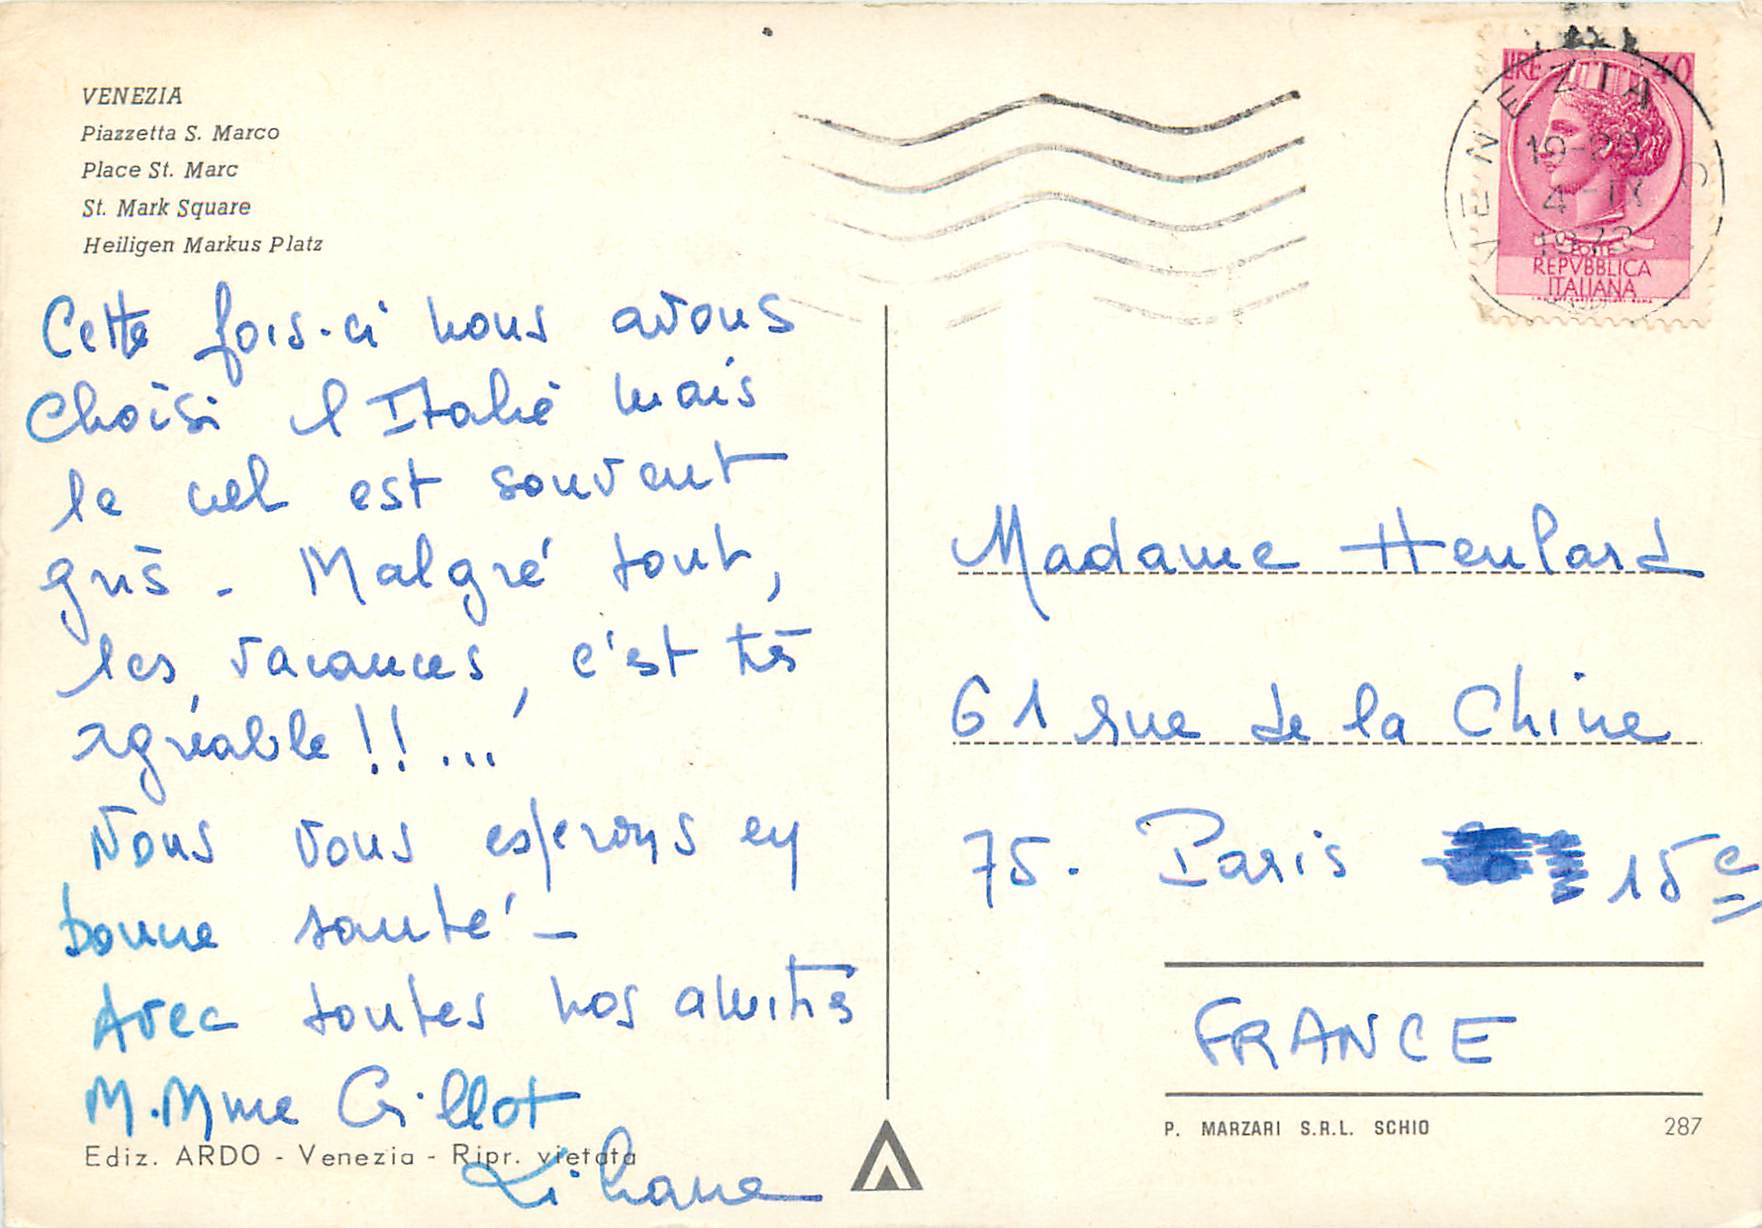 VENEZIA
Piazzetta S. Marco
Place St. Marc
St. Mark Square
Heiligen Markus Platz
Cette fois-ci nous avons
choisi l'Italie mais
le ciel est souvent
gris - Malgré tout,
les vacances, c'est très
agréable !! ...
Nous vous espérons en
bonne santé -
Avec toutes nos amitiés
M. Mme Gillot
Liliane
Ediz. ARDO - Venezia - Ripr. vietata
LIRE 40
VENEZIA
19-20
4-IX
1972
REPVBBLICA
ITALIANA
Madame Heulard
61 rue de la Chine
75. Paris 15e
FRANCE
P. MARZARI S.R.L. SCHIO 287